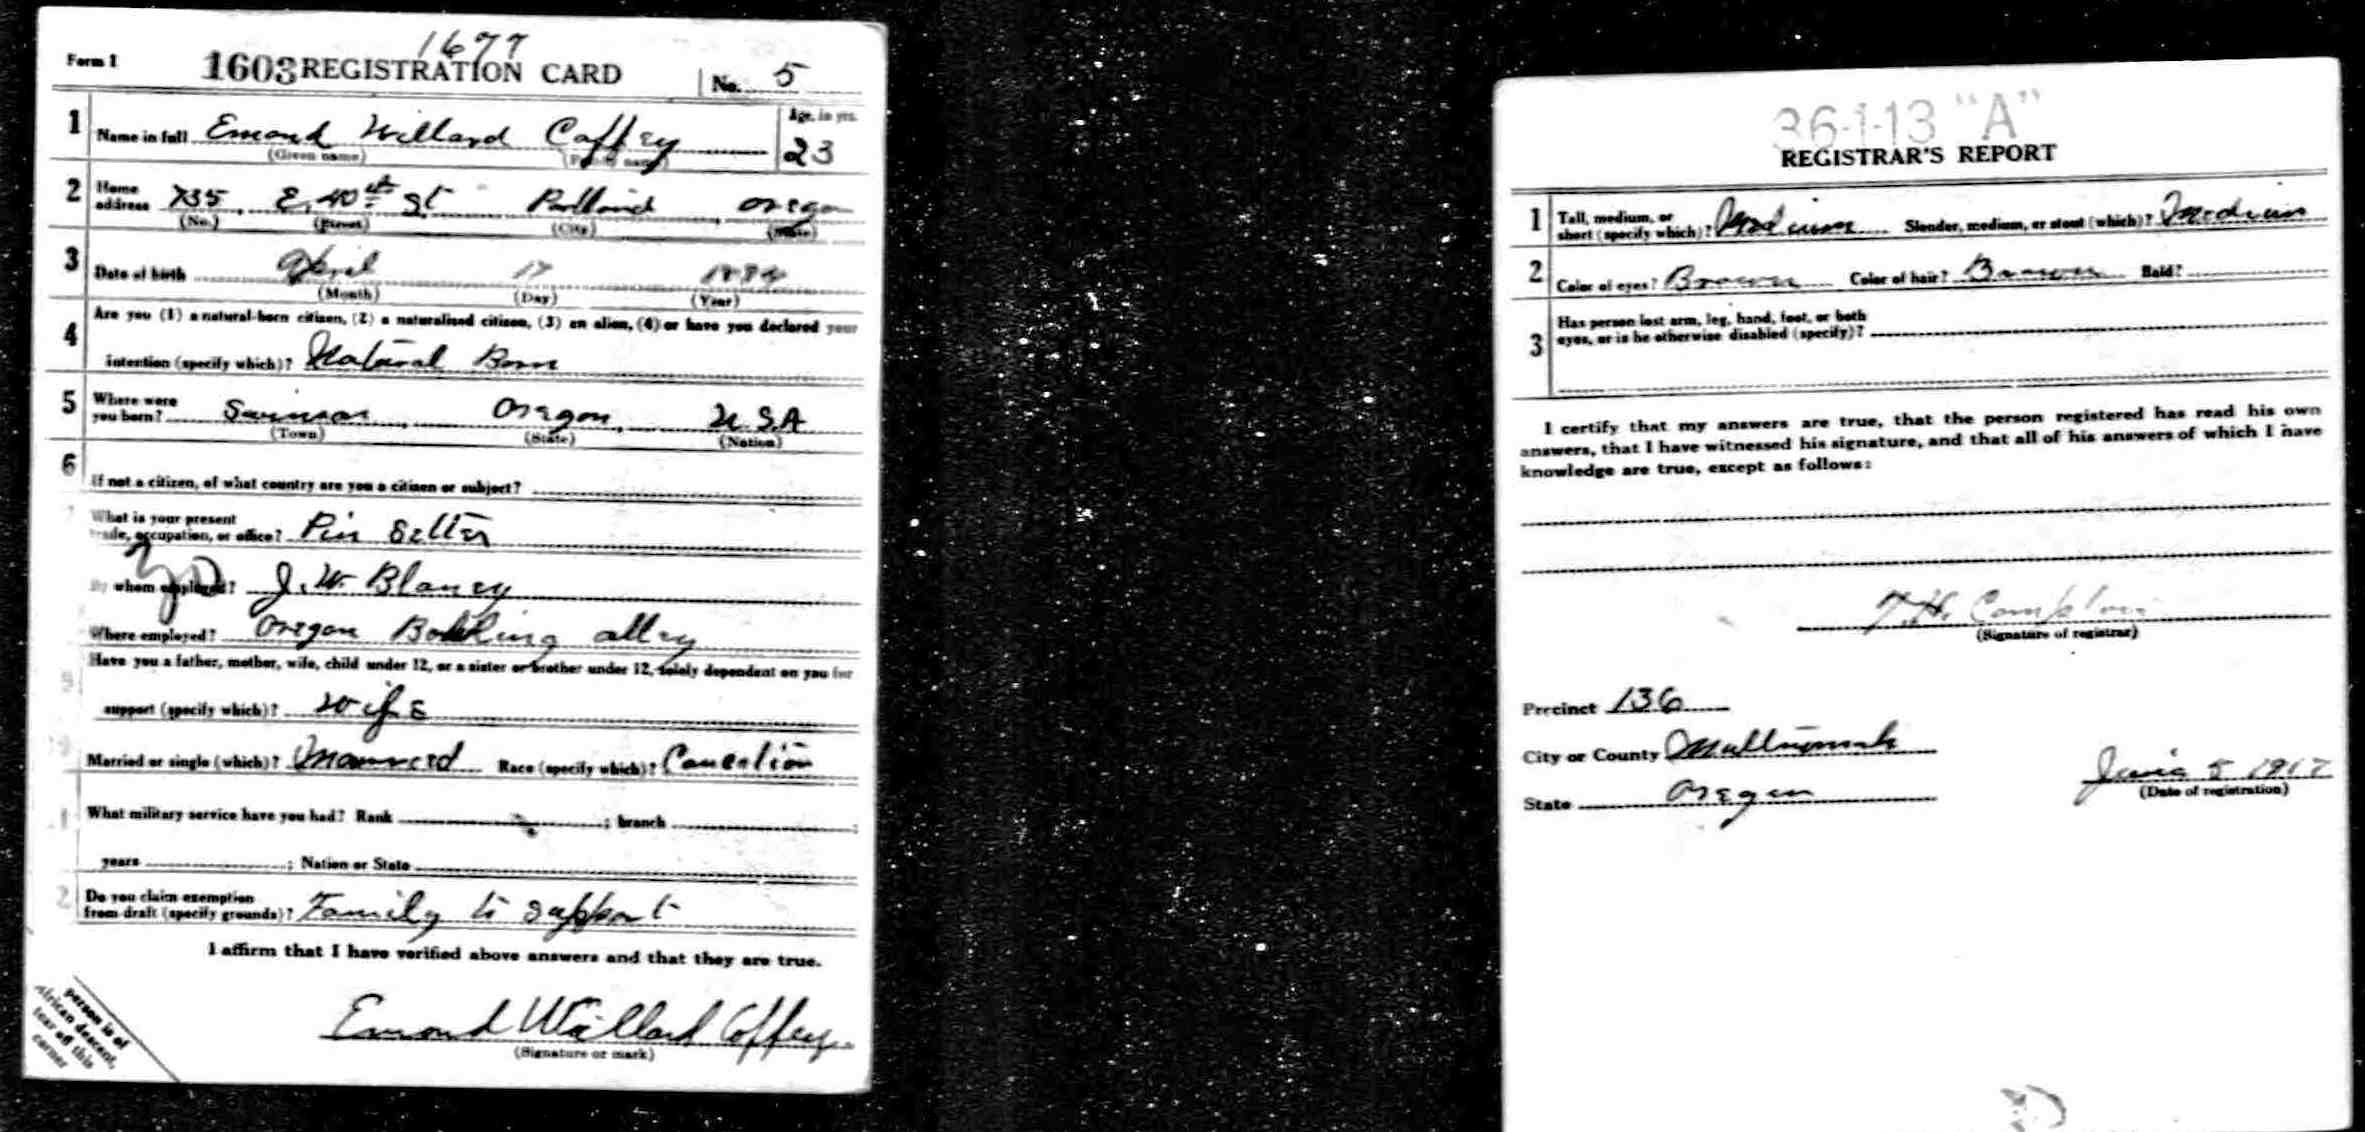 1677
Form 1 1603 REGISTRATION CARD No. 5
1 Name in full Emond Willard Caffey Age, in yrs. 23
(Given name) (Family name)
2 Home address 735 E. 40th St Portland, Oregon
(No.) (Street) (City) (State)
3 Date of birth April 17 1894
(Month) (Day) (Year)
Are you (1) a natural-born citizen, (2) a naturalized citizen, (3) an alien, (4) or have you declared your
4 intention (specify which)? Natural Born
5 Where were you born? Oregon, U.S.A
(Town) (State) (Nation)
6 If not a citizen, of what country are you a citizen or subject?
7 What is your present trade, occupation, or office? Pin Setter
By whom employed? J. W. Blaney
Where employed? Oregon Bowling alley
Have you a father, mother, wife, child under 12, or a sister or brother under 12, solely dependent on you for
9 support (specify which)? Wife
Married or single (which)? Married Race (specify which)? Caucation
What military service have you had? Rank ; branch ;
years ; Nation or State
2 Do you claim exemption from draft (specify grounds)? Family to support
I affirm that I have verified above answers and that they are true.
Emond Willard Coffey
(Signature or mark)
person is of
African descent,
tear off this
corner
36-1-13 "A"
REGISTRAR'S REPORT
1 Tall, medium, or short (specify which)? Medium Slender, medium, or stout (which)? Medium
2 Color of eyes? Brown Color of hair? Brown Bald?
3 Has person lost arm, leg, hand, foot, or both eyes, or is he otherwise disabled (specify)?
I certify that my answers are true, that the person registered has read his own
answers, that I have witnessed his signature, and that all of his answers of which I have
knowledge are true, except as follows:
T. H. Compton
(Signature of registrar)
Precinct 136
City or County Multnomah
State Oregon
June 5 1917
(Date of registration)